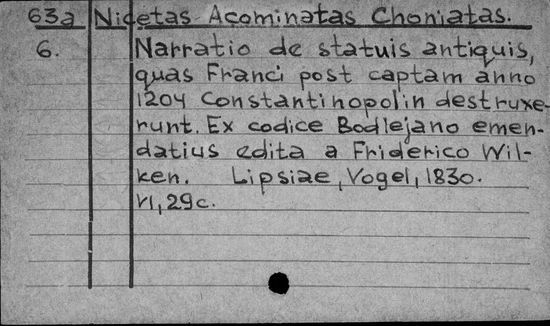 63a Nicetas Acominatas Choniatas.
6. Narratio de statuis antiquis,
quas Franci post captam anno
1204 Constantinopolin destruxe-
runt. Ex codice Bodlejano emen-
datius edita a Friderico Wil-
ken. Lipsiae, Vogel, 1830.
VI, 29c.